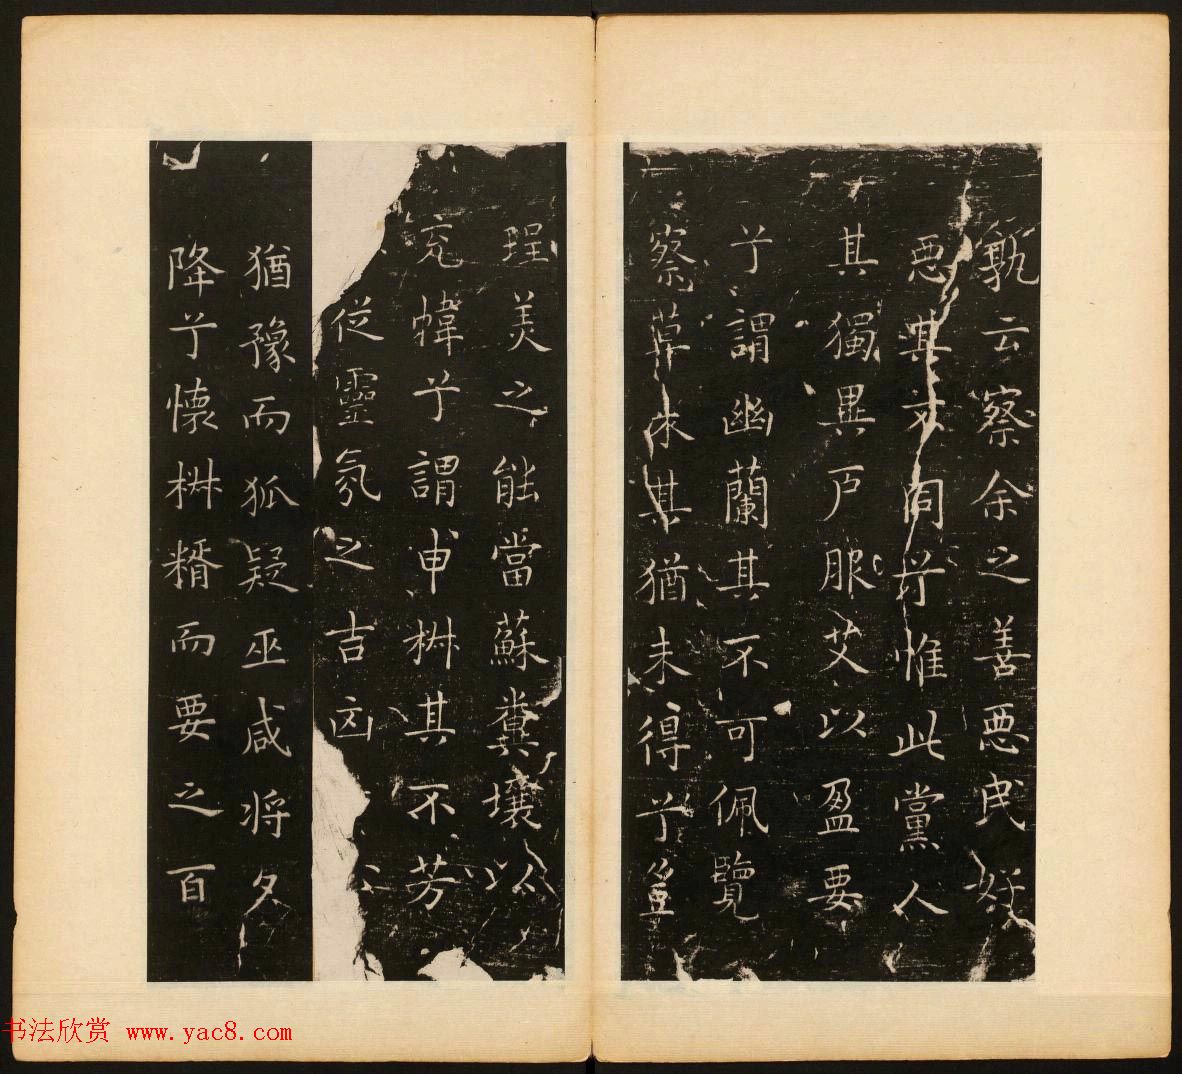 孰云察余之善惡民好
惡其不同兮惟此黨人
其獨異戶服艾以盈要
兮謂幽蘭其不可佩覽
察草木其猶未得兮豈
珵美之能當蘇糞壤以
充幃兮謂申椒其不芳
從靈氛之吉
猶豫而狐疑巫咸将夕
降兮懷椒糈而要之百
书法欣赏 www.yac8.com